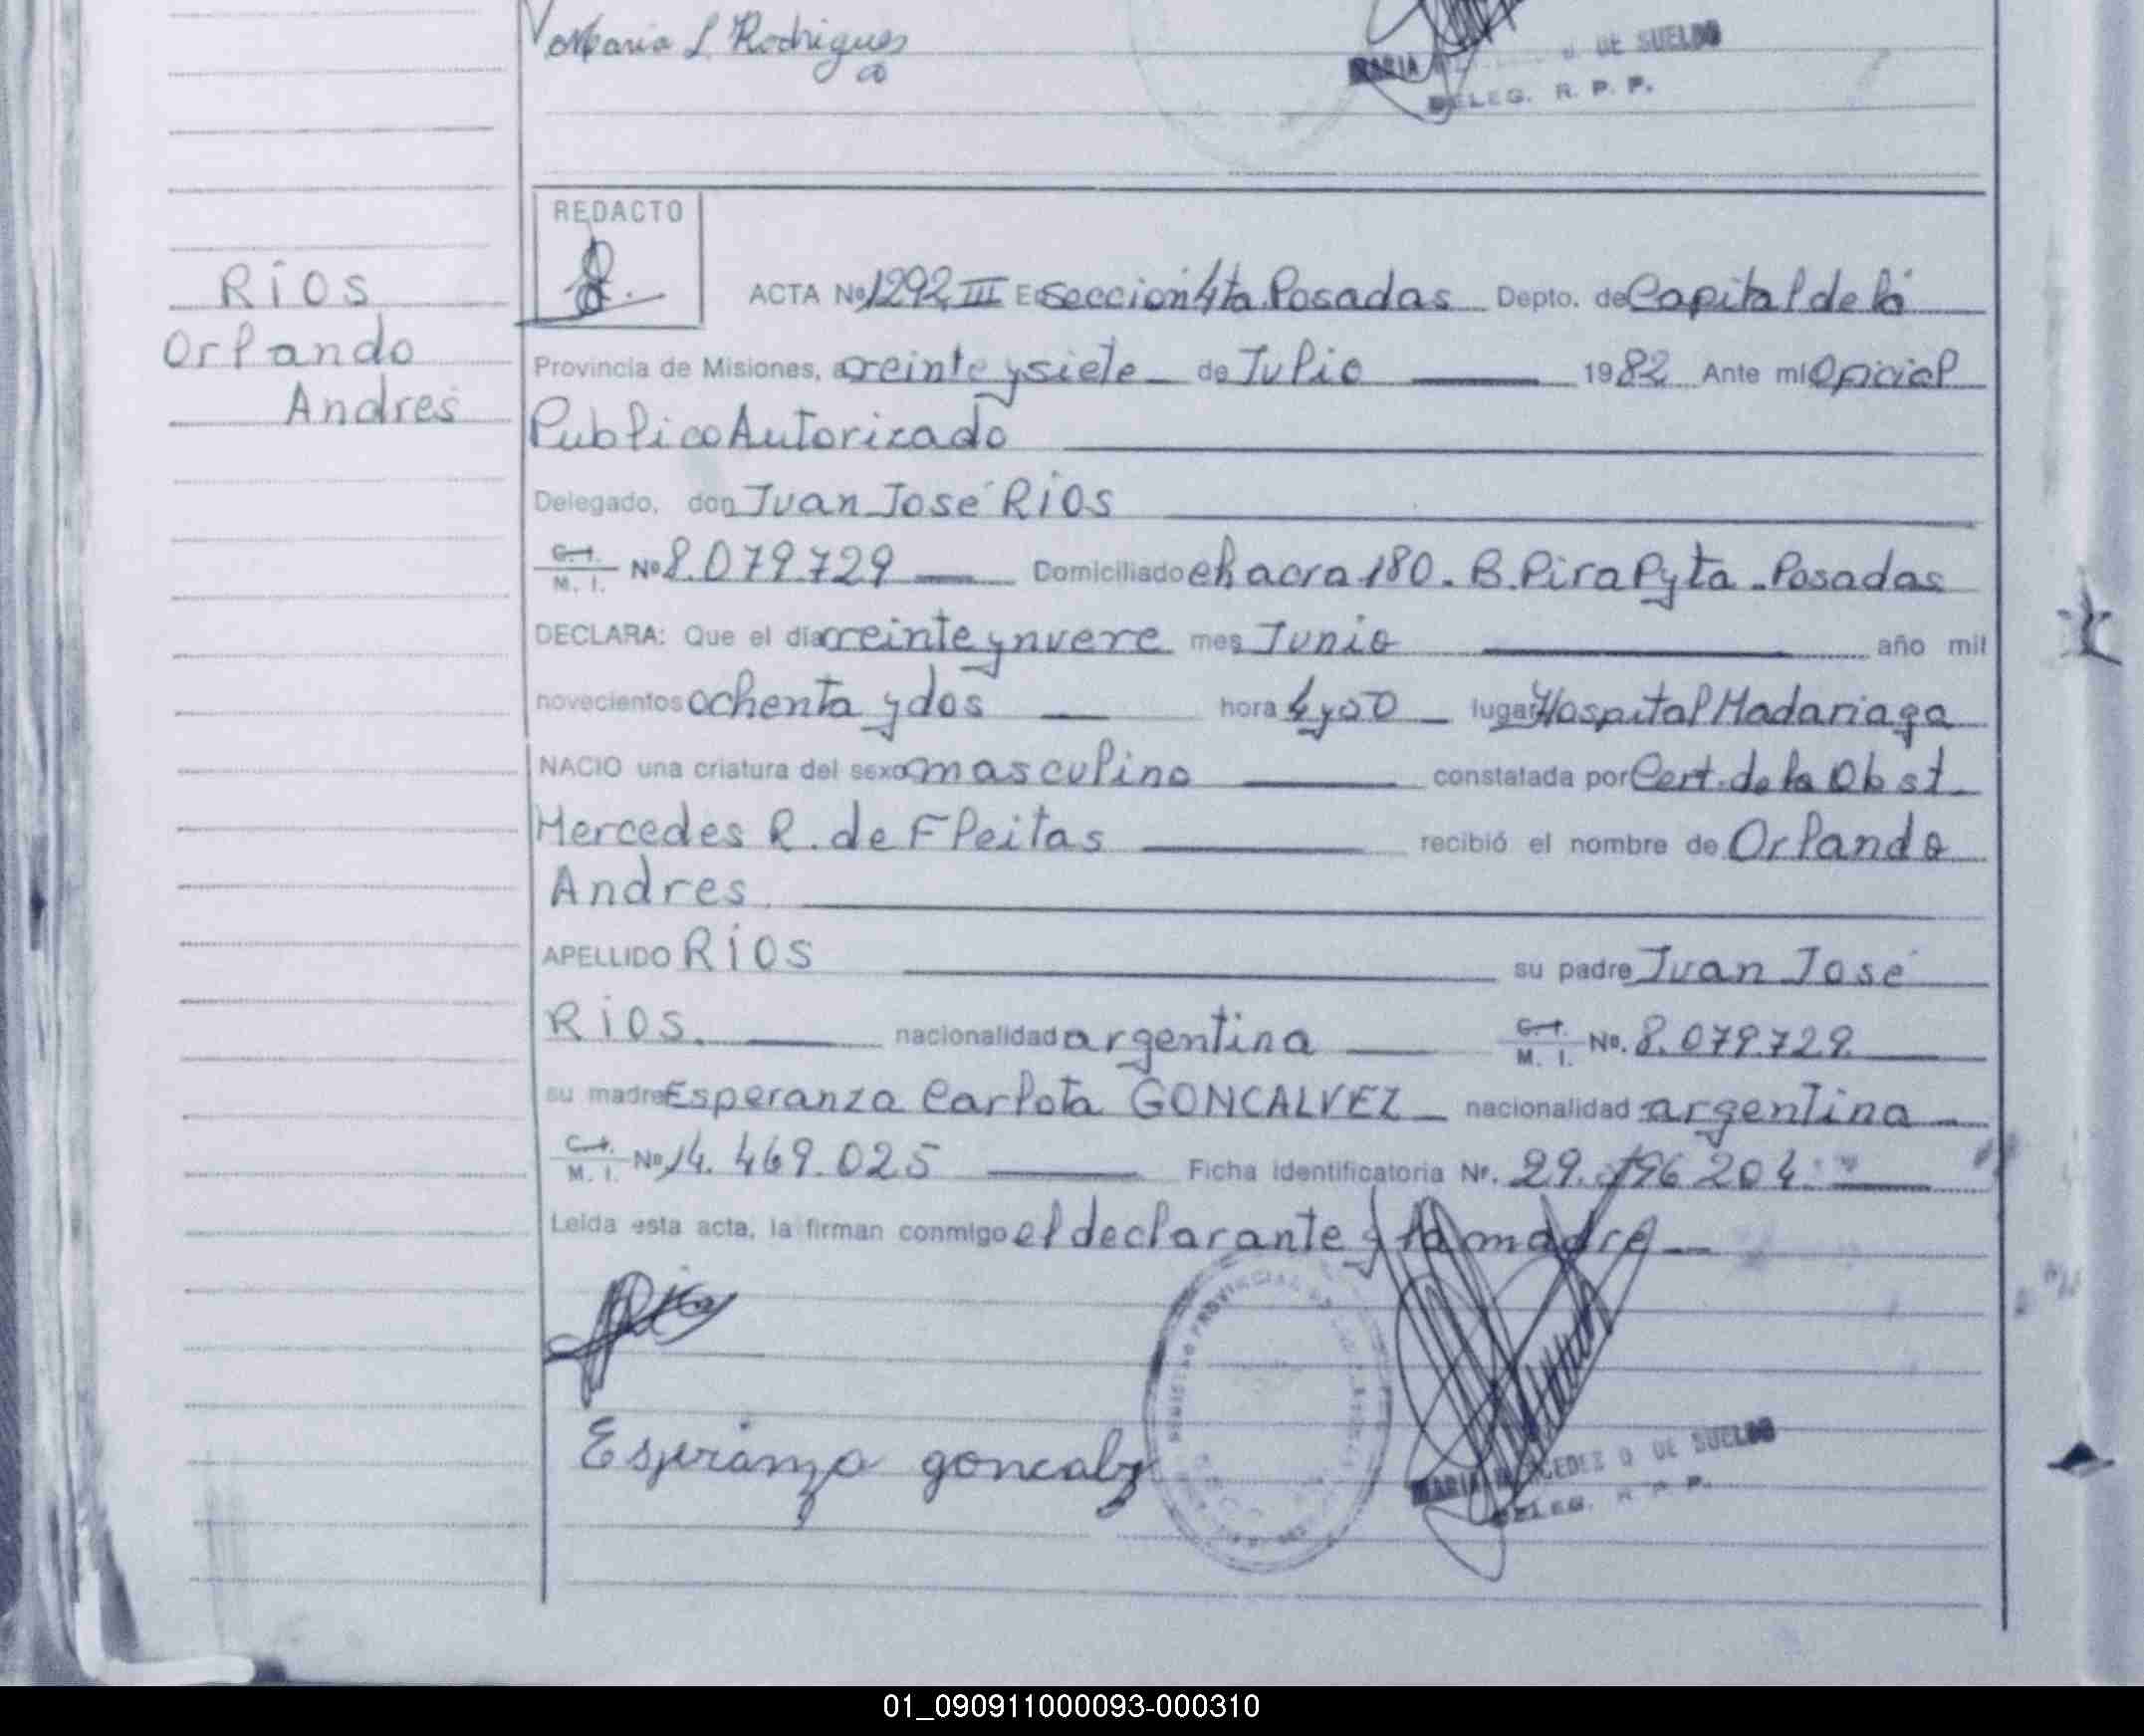 Maria L. Rodrigues
MARIA DE SUELDO
DELEG. R. P. P.
REDACTO
RIOS
Orlando
Andres
ACTA Nº 1292 III En Seccion 4ta. Posadas Depto. de Capital de la
Provincia de Misiones, a veinte y siete de Julio 1982 Ante mi Oficial
Publico Autorizado
Delegado, don Juan José RIOS
C. I. M. I. Nº 8.079.729 Domiciliado chacra 180. B. Pira Pyta. Posadas
DECLARA: Que el día veinte y nueve mes Junio año mil
novecientos ochenta y dos hora 4 y 00 lugar Hospital Madariaga
NACIO una criatura del sexo masculino constatada por Cert. de la Obst
Mercedes R. de Fleitas recibió el nombre de Orlando
Andres.
APELLIDO RIOS su padre Juan José
RIOS. nacionalidad argentina C. I. M. I. Nº. 8.079.729.
su madre Esperanza Carlota GONCALVEZ nacionalidad argentina
C. I. M. I. Nº 14.469.025 Ficha Identificatoria Nº. 29. 204
Leída esta acta, la firman conmigo el declarante y la madre
Esperanza goncalz
PROVINCIAL
MARIA MERCEDES O DE SUELDO
DELEG. R. P. P.
01_090911000093-000310